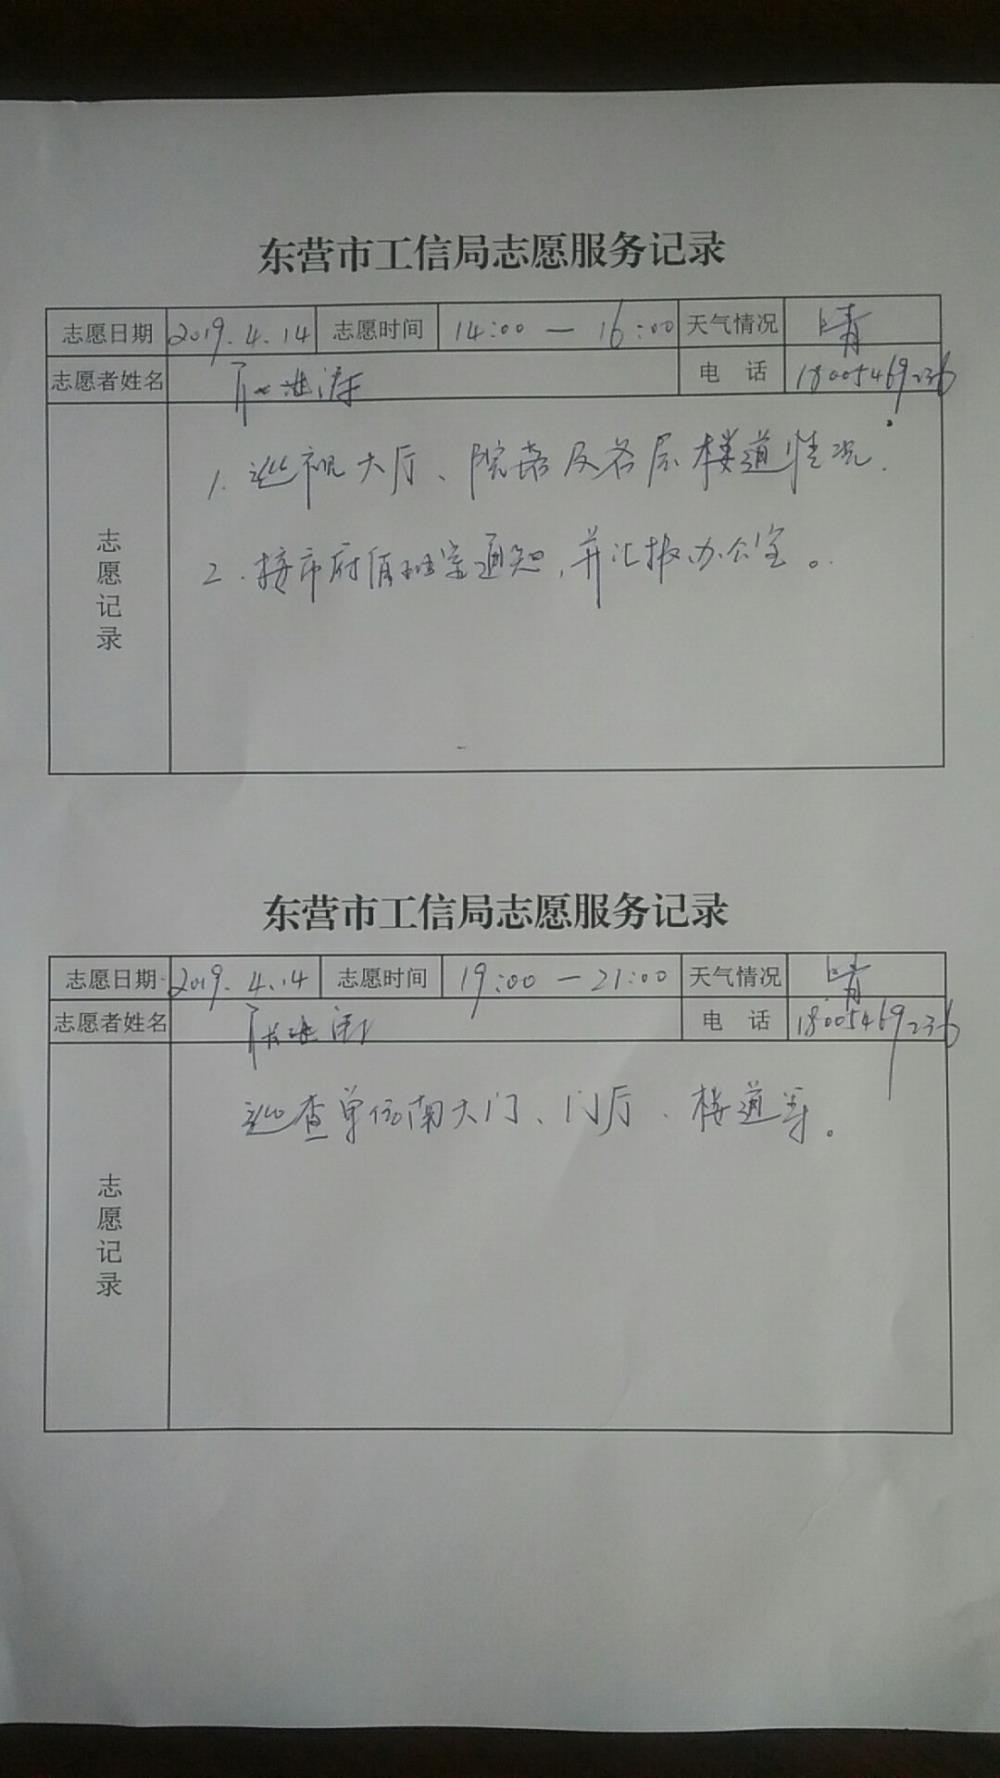 东营市工信局志愿服务记录
志愿日期 2019.4.14 志愿时间 14:00 — 16:00 天气情况 晴
志愿者姓名 电 话 18005469236
志愿记录
1. 巡视大厅、院落及各层楼道情况.
2. 接市府值班室通知,并汇报办公室。
东营市工信局志愿服务记录
志愿日期 2019.4.14 志愿时间 19:00 — 21:00 天气情况 晴
志愿者姓名 电 话 18005469236
志愿记录
巡查单位南大门、门厅、楼道等。